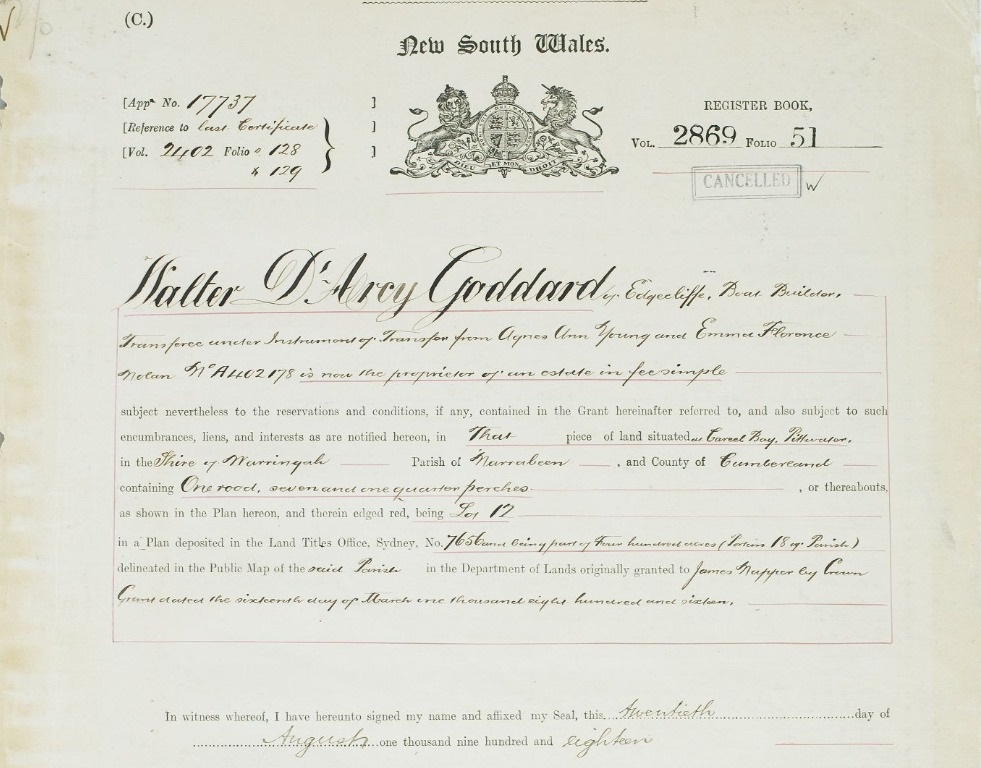 (C.)
New South Wales.
[Appn. No. 17737 ]
[Reference to last Certificate ]
[Vol. 2402 Folio " 128 ]
" 129
DIEU ET MON DROIT
REGISTER BOOK,
VOL. 2869 FOLIO 51
CANCELLED
Walter D'Arcy Goddard of Edgecliffe, Boat Builder,
Transferee under Instrument of Transfer from Agnes Ann Young and Emma Florence
Nolan No A402178 is now the proprietor of an estate in fee simple
subject nevertheless to the reservations and conditions, if any, contained in the Grant hereinafter referred to, and also subject to such
encumbrances, liens, and interests as are notified hereon, in That piece of land situated at Careel Bay, Pittwater,
in the Shire of Warringah Parish of Narrabeen , and County of Cumberland
containing One rood, seven and one quarter perches , or thereabouts,
as shown in the Plan hereon, and therein edged red, being Lot 12
in a Plan deposited in the Land Titles Office, Sydney, No. 7656 and being part of Four hundred acres (Portion 18 of Parish)
delineated in the Public Map of the said Parish in the Department of Lands originally granted to James Napper by Crown
Grant dated the sixteenth day of March one thousand eight hundred and sixteen.
In witness whereof, I have hereunto signed my name and affixed my Seal, this twentieth day of
August one thousand nine hundred and eighteen